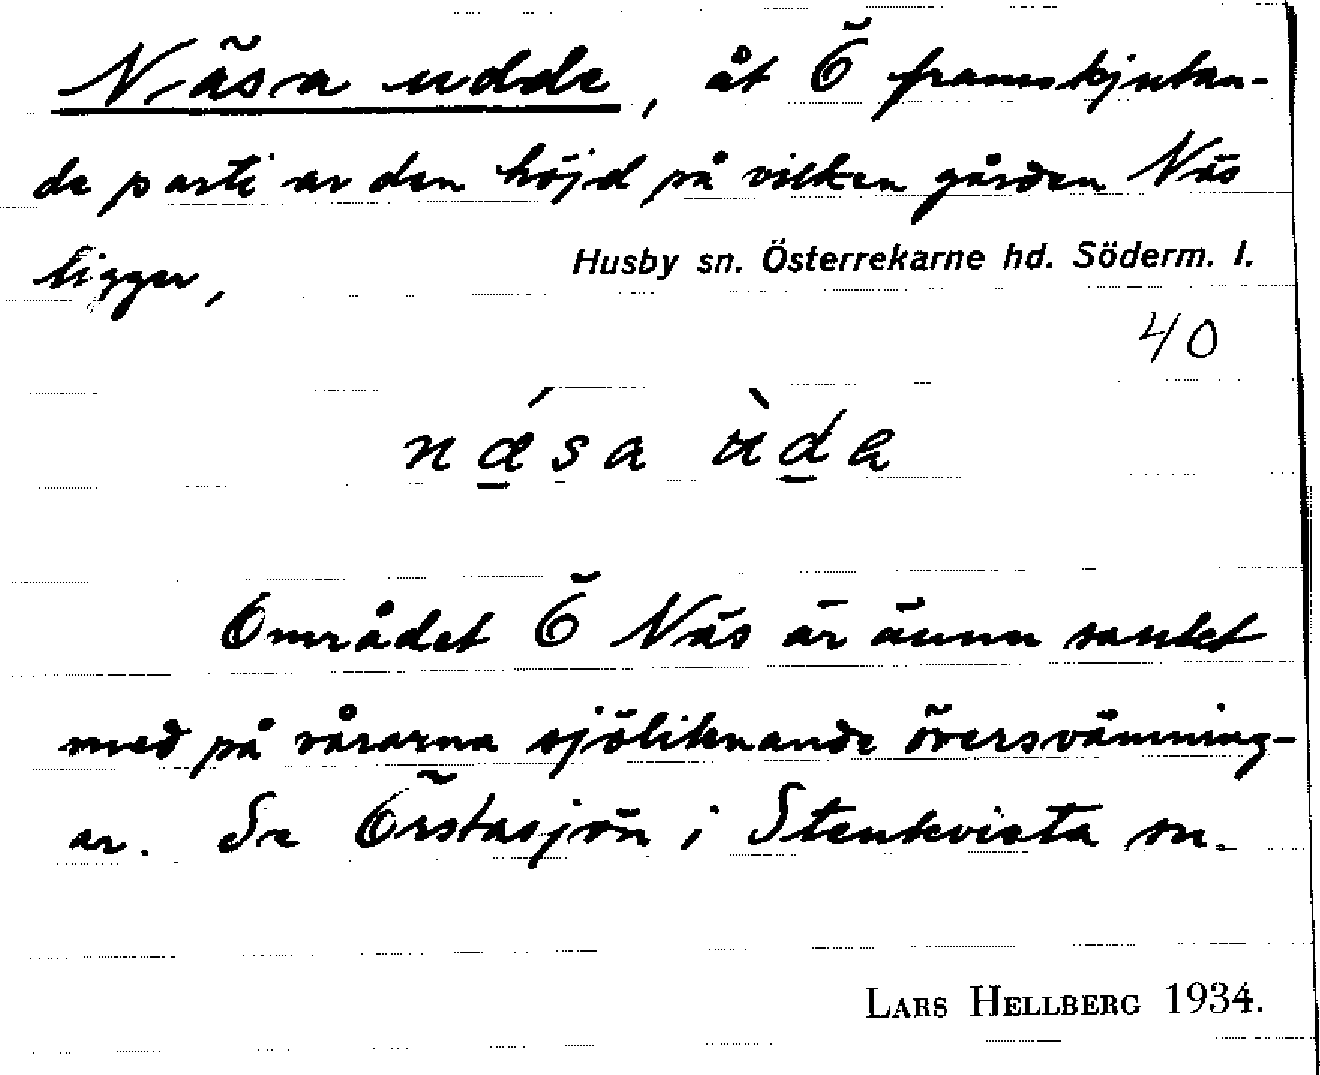 Näsa udde, åt Ö framskjutan-
de parti av den höjd på vilken gården Näs
ligger,
Husby sn. Österrekarne hd. Söderm. l.
40
nǽ̲sa ùd̲a
Området Ö Näs är ännu sankt
med på vårarna sjöliknande översvämning-
ar. Se Örstasjön i Stenkvista sn.
LARS HELLBERG 1934.